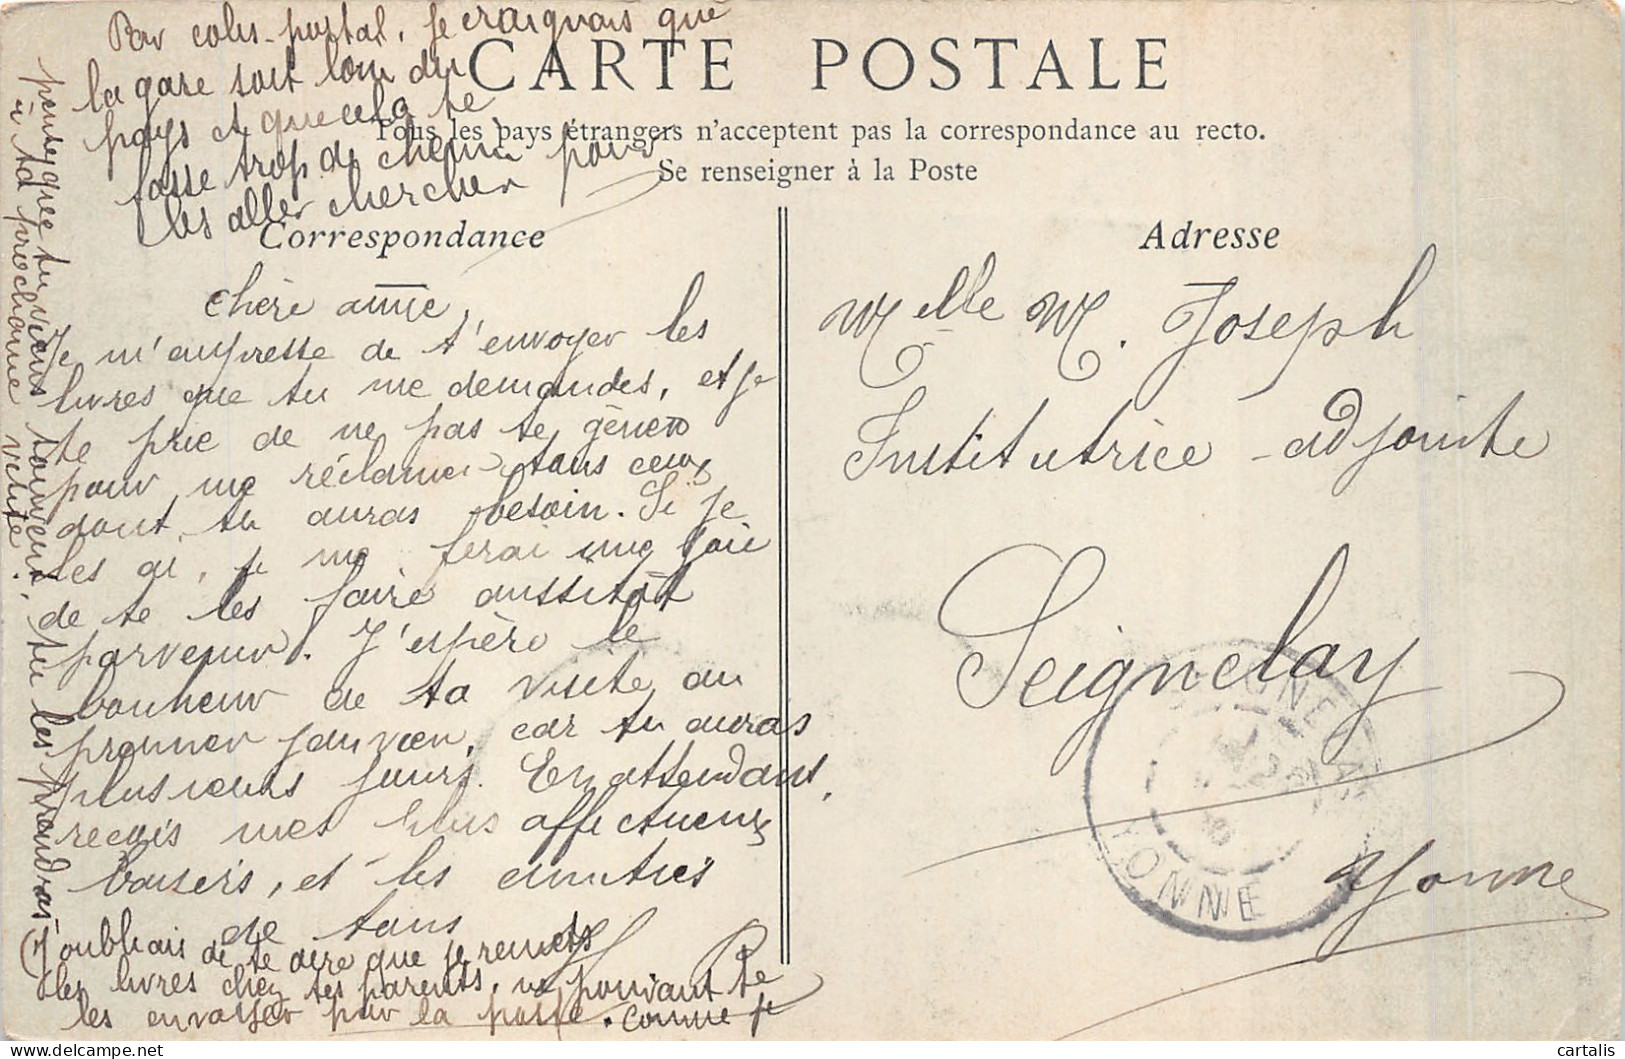 CARTE POSTALE
Tous les pays étrangers n'acceptent pas la correspondance au recto.
Se renseigner à la Poste
Correspondance
Chère amie,
Je m'empresse de t'envoyer les
livres que tu me demandes, et je
te prie de ne pas te gêner
pour me réclamer tous ceux
dont tu auras besoin. Si je
les ai, je me ferai une joie
de te les faire aussitôt
parvenir. J'espère le
bonheur de ta visite au
premier janvier, car tu auras
plusieurs jours. En attendant,
reçois mes plus affectueux
baisers, et les amitiés
de tous
(J'oubliais de te dire que je remets
les livres chez tes parents, ne pouvant te
les envoyer par la poste. comme je
pense que tu viens souvent, tu les prendras
à ta prochaine visite.
Par colis-postal, je craignais que
la gare soit loin du
pays et que cela te
fasse trop de chemin pour
les aller chercher
Adresse
Melle M. Joseph
Institutrice-adjointe
Seignelay
Yonne
YONNE